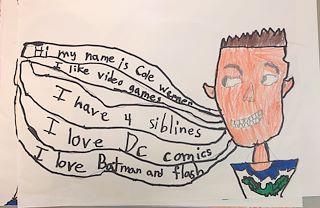 Hi my name is Cole Werner
I like video games
I have 4 siblines
I love DC comics
I love Batman and flash